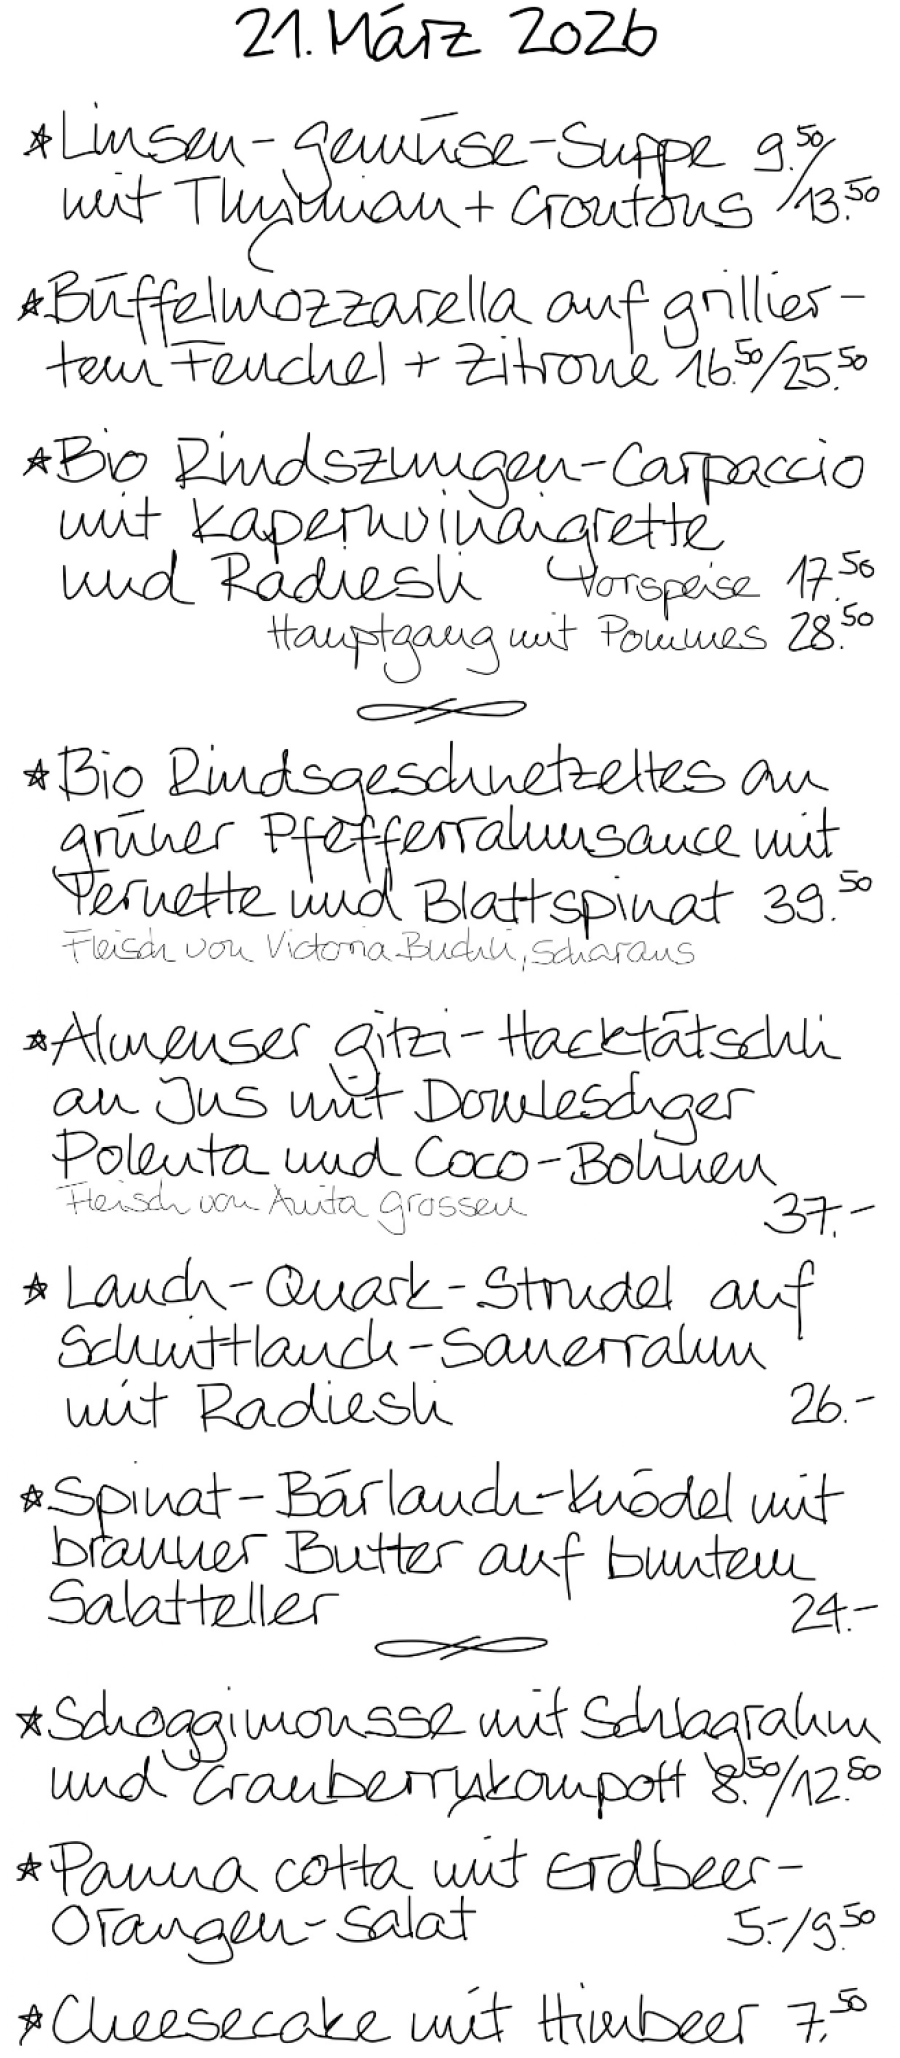 21. März 2026
*Linsen-Gemüse-Suppe 9.50/
mit Thymian + Croutons 13.50
*Büffelmozzarella auf grillier-
tem Fenchel + Zitrone 16.50/25.50
*Bio Rindszungen-Carpaccio
mit Kapernvinaigrette
und Radiesli Vorspeise 17.50
Hauptgang mit Pommes 28.50
*Bio Rindsgeschnetzeltes an
grüner Pfefferrahmsauce mit
Pernette und Blattspinat 39.50
Fleisch von Victoria Buchli, Scharans
*Almenser Gitzi-Hacktätschli
an Jus mit Domleschger
Polenta und Coco-Bohnen
Fleisch von Anita Grossen
37.-
*Lauch-Quark-Strudel auf
Schnittlauch-Sauerrahm
mit Radiesli 26.-
*Spinat-Bärlauch-Knödel mit
brauner Butter auf buntem
Salatteller 24.-
*Schoggimousse mit Schlagrahm
und Cranberrykompott 8.50/12.50
*Panna cotta mit Erdbeer-
Orangen-Salat 5.-/9.50
*Cheesecake mit Himbeer 7.50